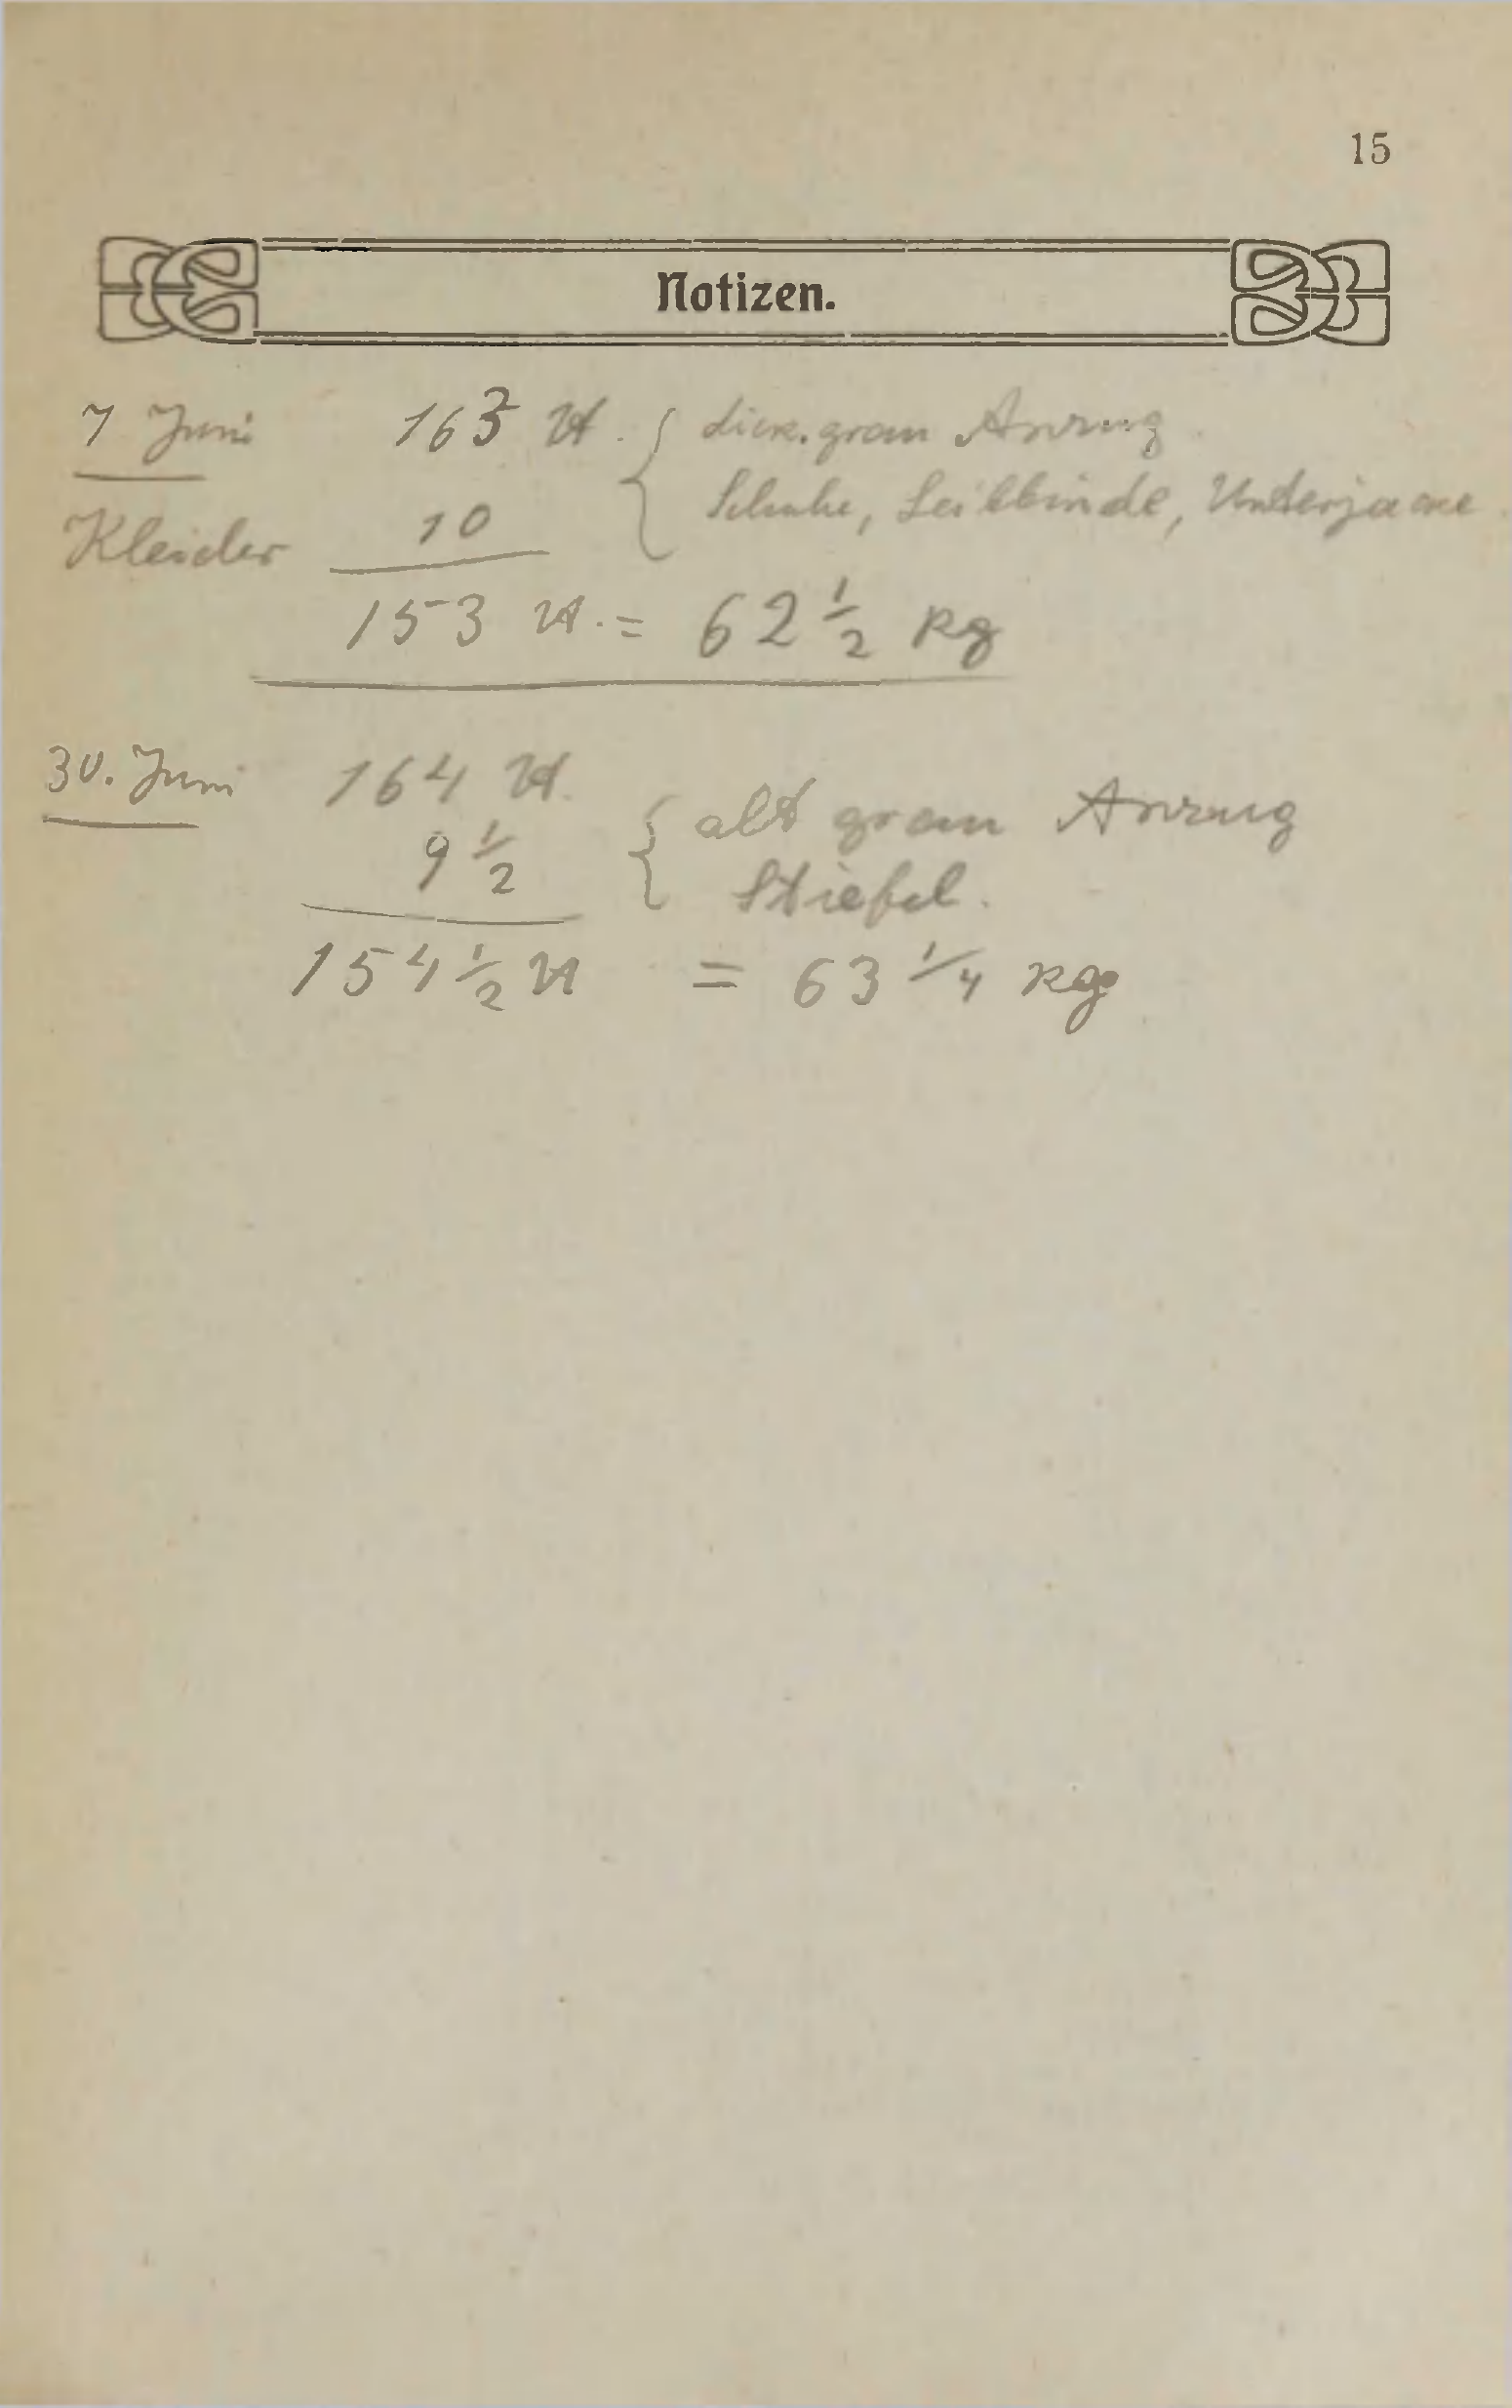 15
Notizen.
7 Juni 163 ℔. { dick. grau Anzug.
Kleider 10 Schuhe, Leibbinde, Unterjacke.
153 ℔. = 62 1/2 kg
30. Juni 164 ℔.
9 1/2 { alt grau Anzug
Stiefel.
154 1/2 ℔ = 63 1/4 kg